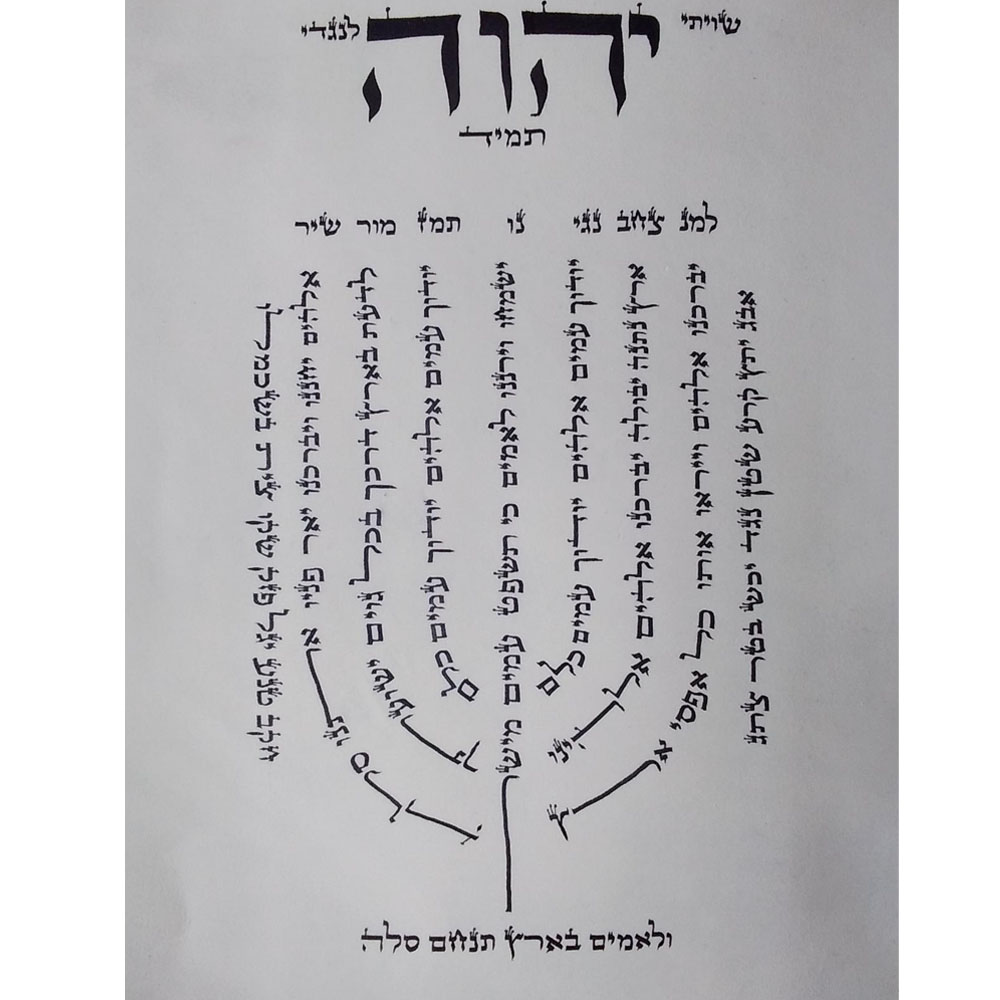 שויתי יהוה לנגדי
תמיד
למנ צחב נגי נו תמז מור שיר
אבג יתץ קרע שטן נגד יכש בטר צתג
יברכנו אלהים וייראו אותו כל אפסי ארץ
ארץ נתנה יבולה יברכנו אלהים אלהינו
יודוך עמים אלהים יודוך עמים כלם
ישמחו וירננו לאמים כי תשפט עמים מישור
יודוך עמים אלהים יודוך עמים כלם
לדעת בארץ דרכך בכל גוים ישועתך
אלהים יחננו ויברכנו יאר פניו אתנו סלה
חקב טנע יגל פזק שקו צית בשכמלו
ולאמים בארץ תנחם סלה